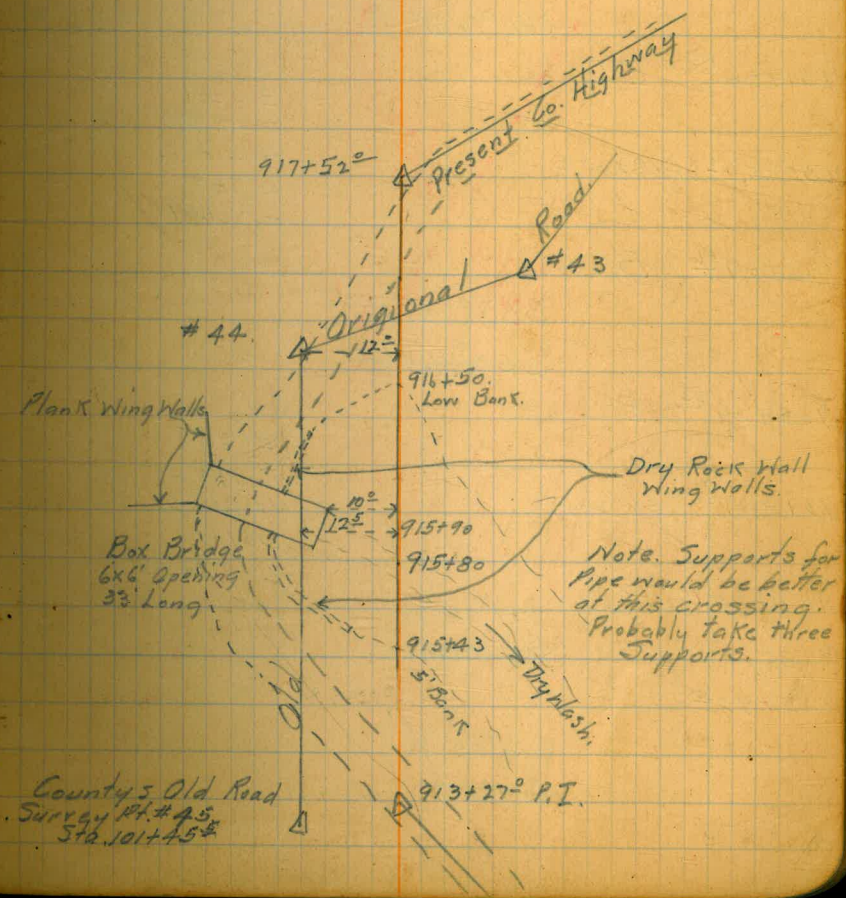 Present Co. Highway
917+52º
Road
#43
Origional
#44
12º
916+50.
Low Bank.
Plank Wing Walls
Dry Rock Wall
Wing Walls.
10º
12⁵
915+90
Box Bridge
6x6' Opening
33' Long
915+80
Note. Supports for
Pipe would be better
at this crossing.
Probably take three
Supports.
915+43
5' Bank
Dry Wash.
Old
County's Old Road
Survey Pt. #45
Sta. 101+45⁵
913+27º P.I.